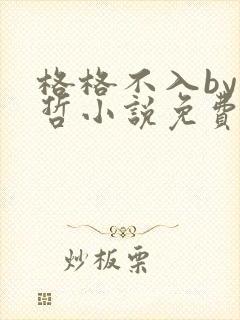 格格不入by
哲小説免費
炒板栗